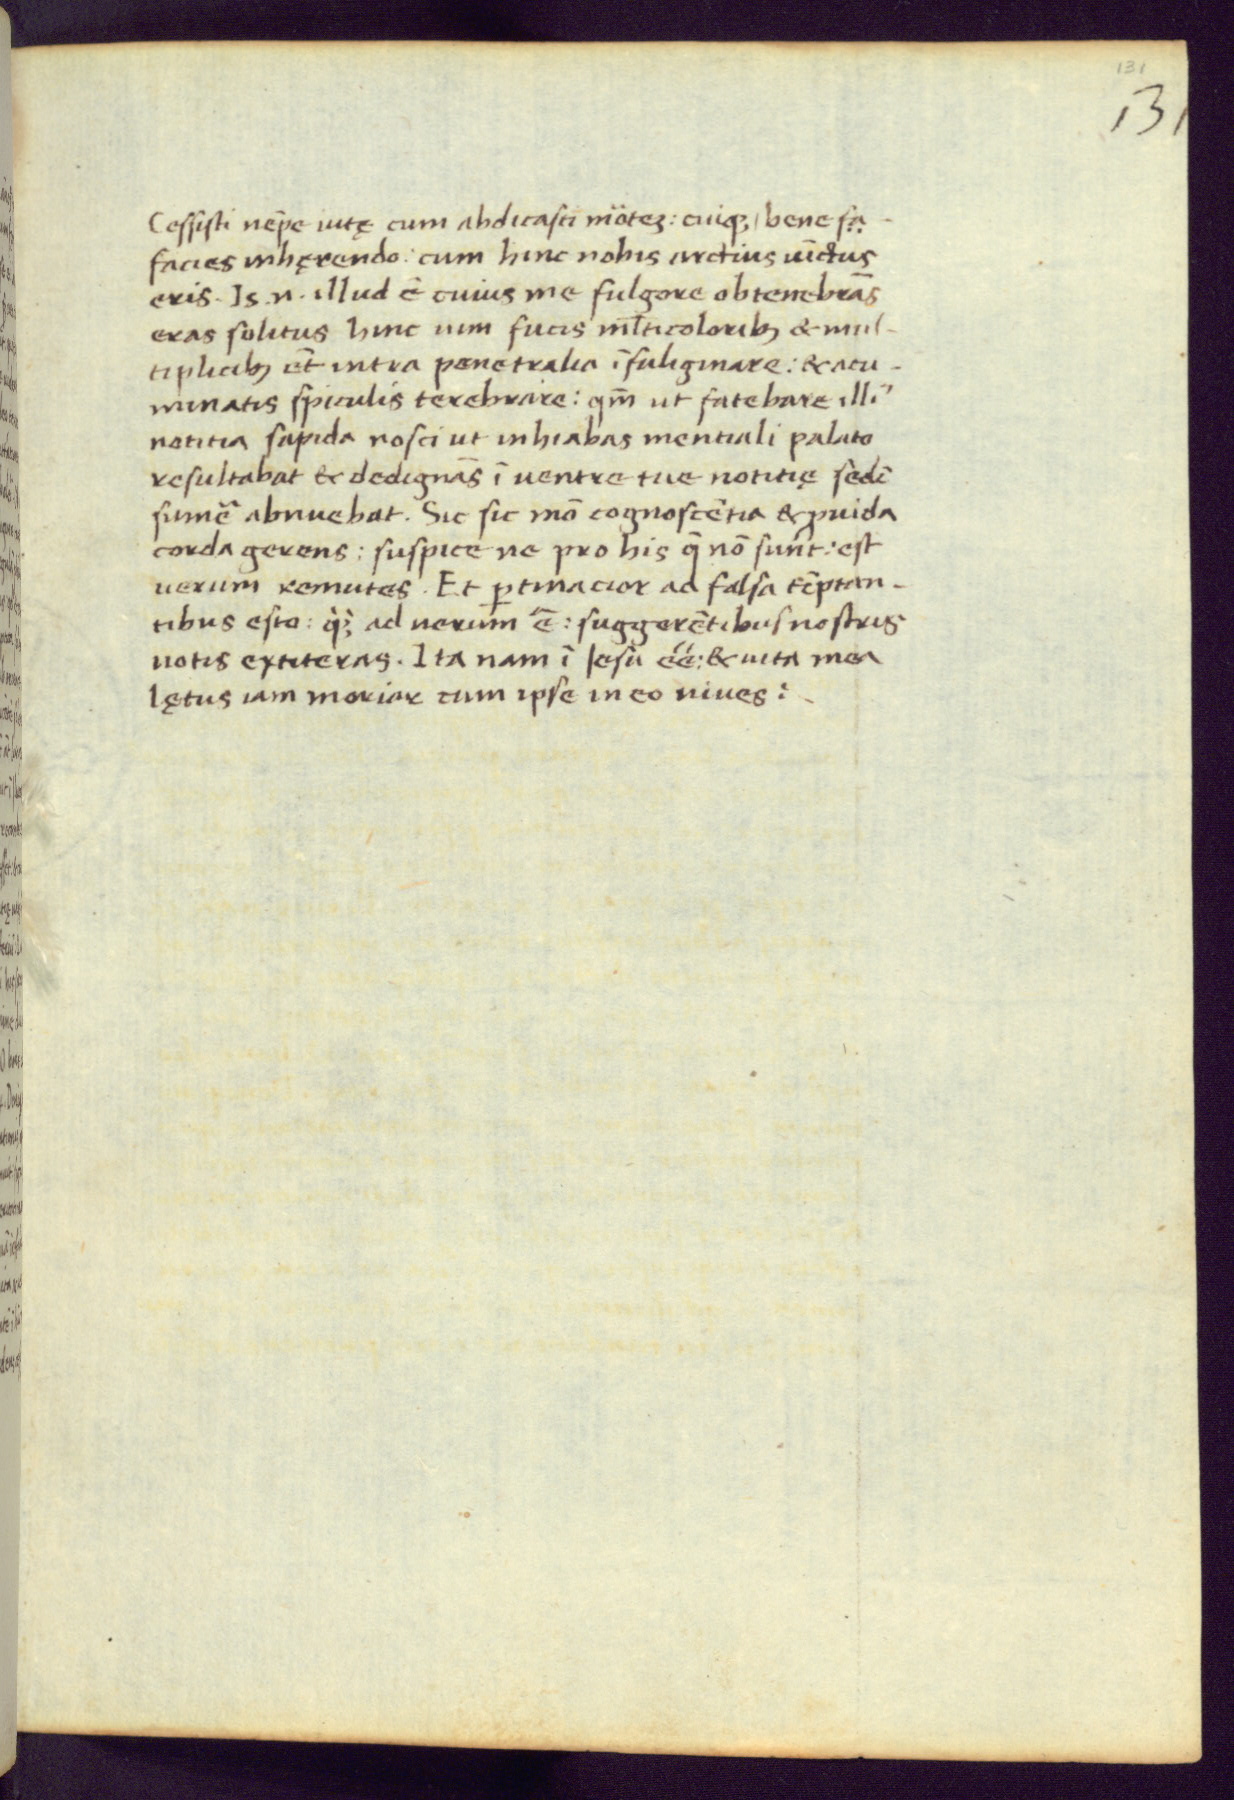 131
131
Cessisti nēpe iutę cum abdicasti mōteʒ: cuiqꝫ bene fa-
facies inhęrendo: cum hinc nobis arctius uīctus
eris. Is .n. illud ē cuius me fulgore obtenebrās
eras solitus hinc uim fucis ml̄ticoloribꝫ & mul-
tiplicibꝫ et̄ intra penetralia īfuliginare: & acu-
minatis spiculis terebrare: qm̄ ut fatebare illiꝰ
notitia sapida nosci ut inhiabas mentiali palato
resultabat & dedignās ī uentre tue notitię sedē
sumē abnuebat. Sic sic mō cognoscētia & ꝓuida
corda gerens: suspice ne pro his q̄ nō sunt: est
uerum remutes. Et ꝑtinacior ad falsa tēptan-
tibus esto: ad uerum ē: suggerētibus nostris
uotis extiteras. Ita nam ī Iesu ēē: & uita mea
lętus iam moriar cum ipse in eo uiues:-